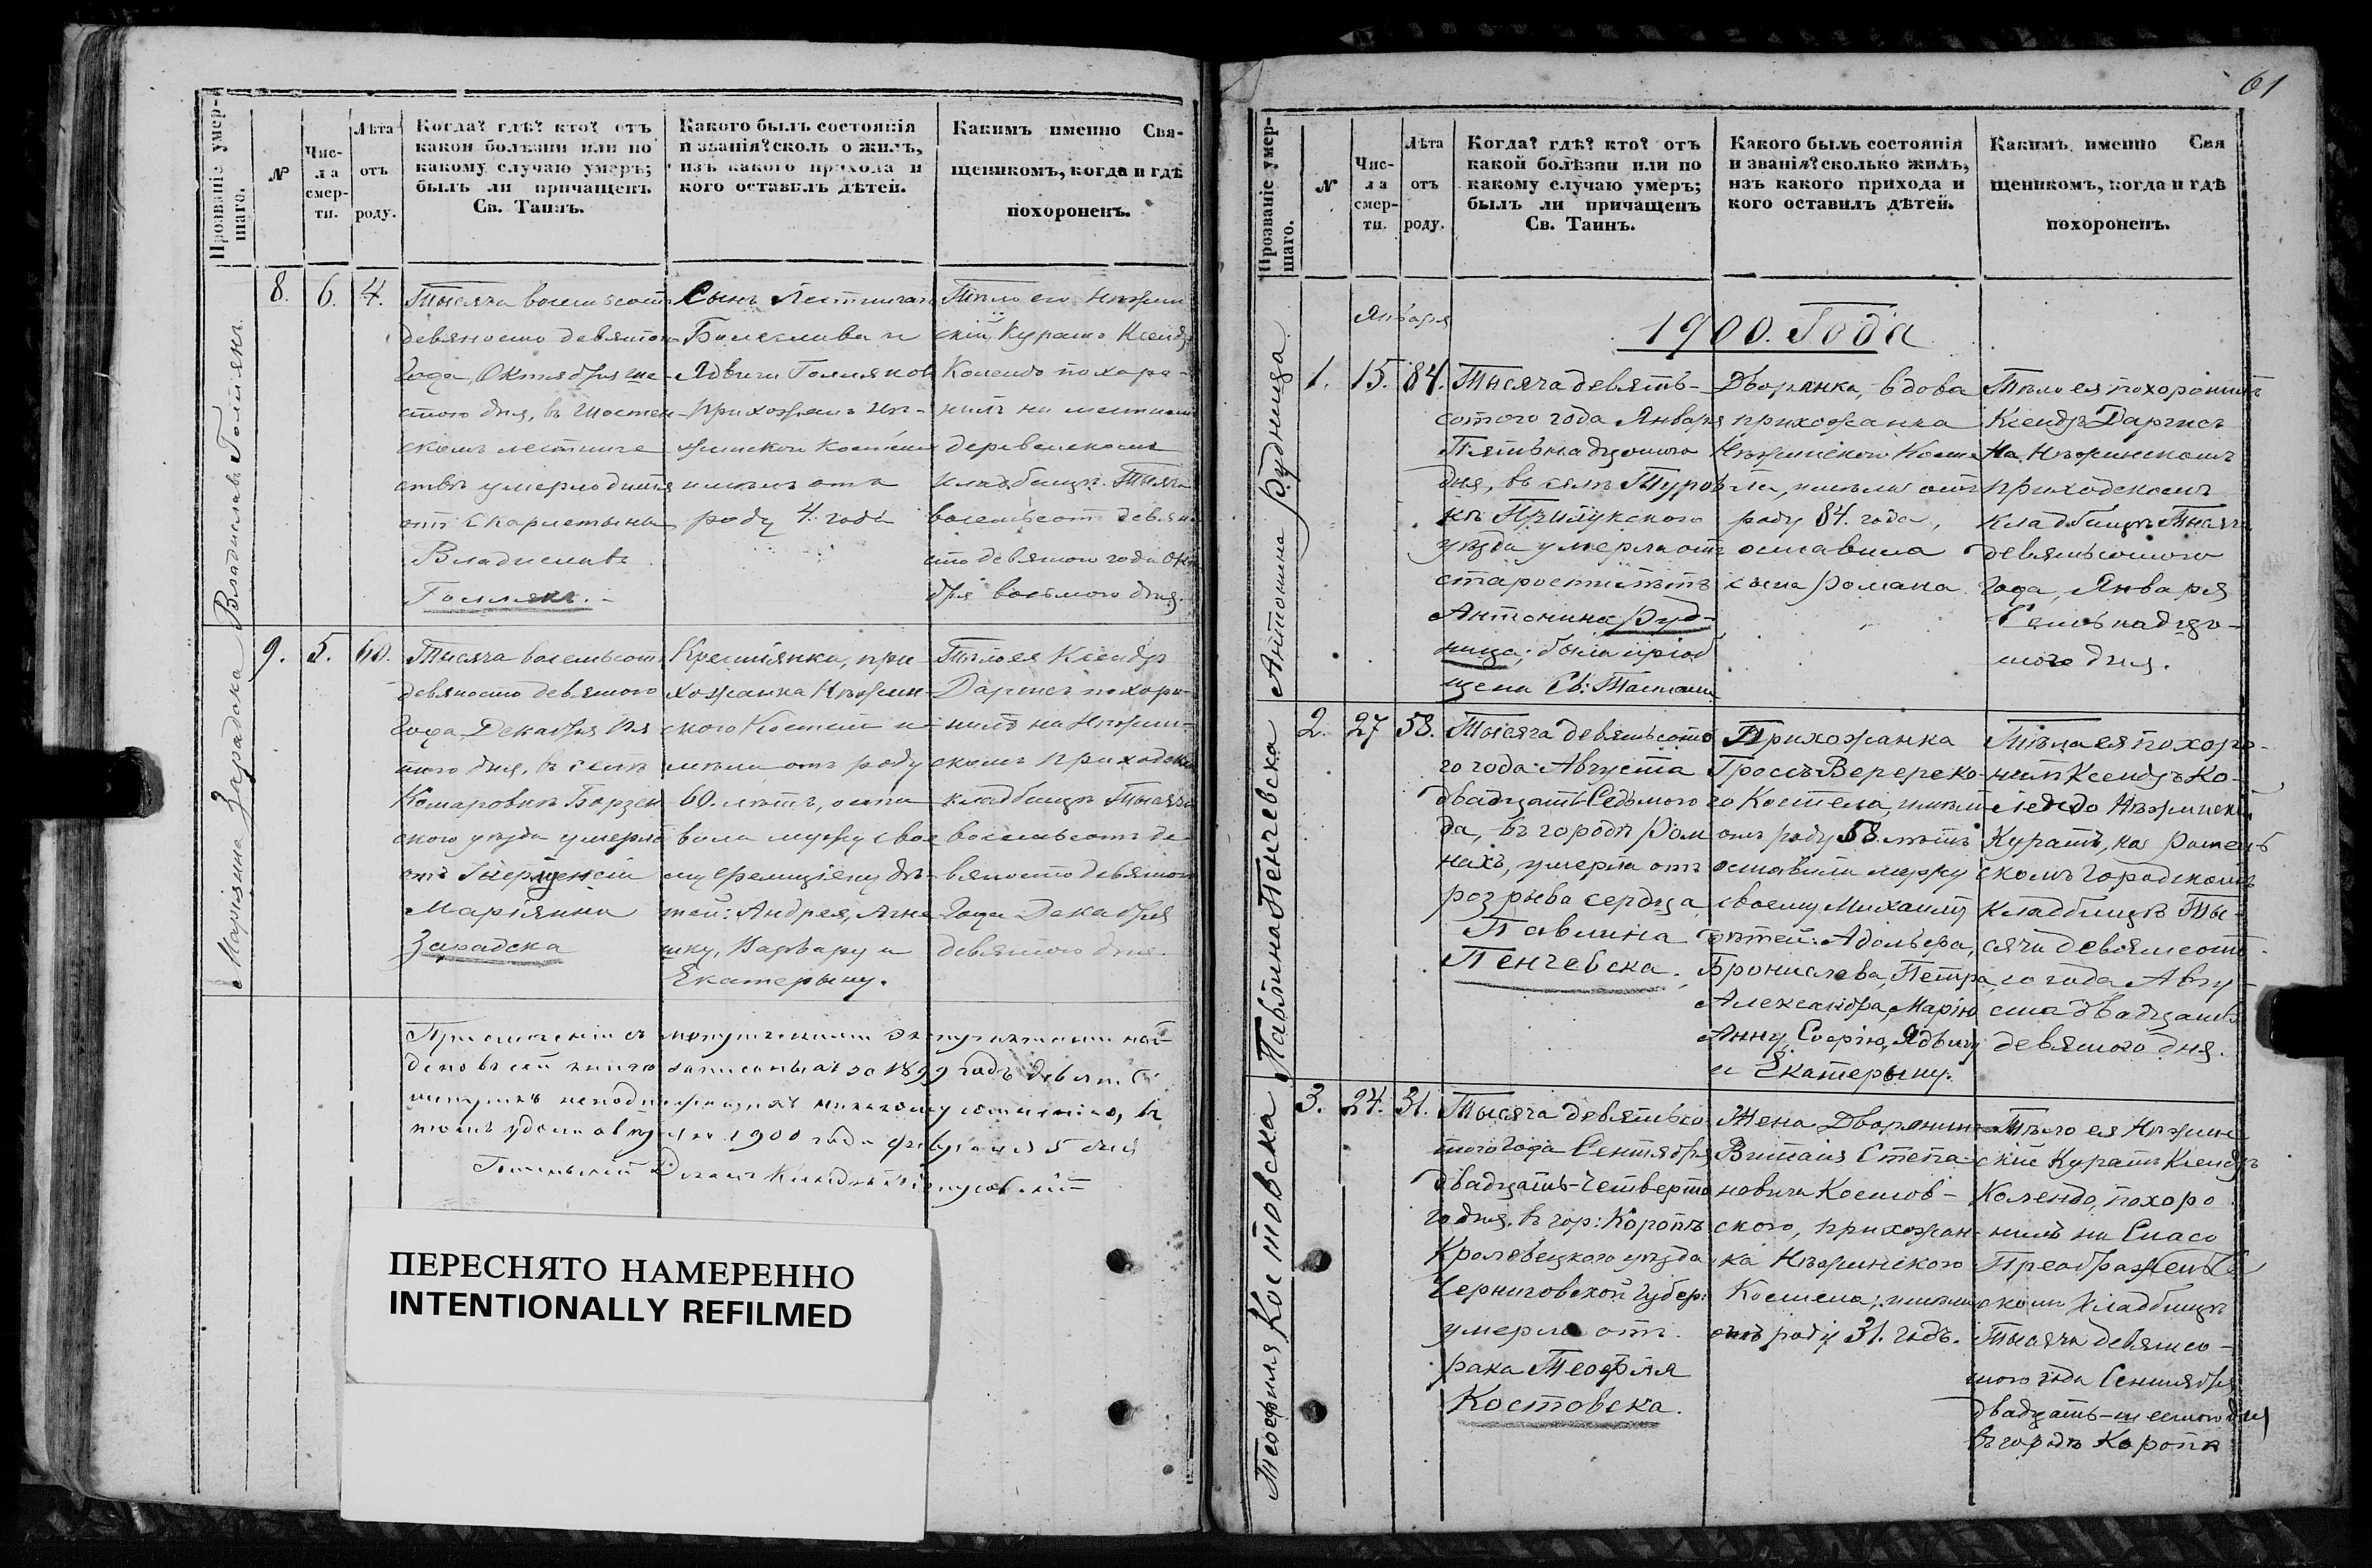 Прозваніе умер-
шаго.
№
Чис-
ла
смер-
ти.
Лѣта
отъ
роду.
Когда? гдѣ? кто? отъ
какой болѣзни или по
какому случаю умеръ;
былъ ли причащенъ
Св. Таинъ.
Какого былъ состоянія
и званія? сколь о жилъ,
изъ какого прихода и
кого оставилъ дѣтей.
Какимъ именно Свя-
щеникомъ, когда и гдѣ
похороненъ.
Владиславъ Голлякъ.
8.
6.
4.
Тысяча восемьсотъ
девяносто девятого
Года, Октября ше-
стого дня, въ
умерло дитя
отъ скарлетыны
Владиславъ
Голлякъ.
Сынъ
Болеслава и
Ядвиги Голляковъ
прихожанъ Нѣ-
жинского Костела
имѣлъ отъ
роду 4. года
Тѣло его Нѣжин
скій Куратъ Ксендзъ
Колендо похоро-
нилъ на
деревенскомъ
кладбищѣ. Тысяча
восемьсот девяно
сто девятого года Октя
бря восьмого дня.
Маріянна Заградска
9.
5.
60.
Тысяча восемьсотъ
девяносто девятого
Года, Декабря пя
того дня, въ селѣ
Комаровкѣ Борзен
ского уѣзда умерла
отъ
Маріянна
Крестіянка, при
хожанка Нѣжин-
ского Костела и-
мѣла отъ роду
60. лѣтъ, оста
вила мужу свое
му Фелиціяну дѣ-
тей: Андрея, Агне
шку, Варвару и
Екатерыну.
Тѣло ея Ксендзъ
Даргисъ похоро-
нилъ на Нѣжин-
скомъ приходском
кладбищѣ Тысяча
восемьсотъ де-
вяносто девятого
Года Декабря
девятого дня.
въ сей книгѣ записаныхъ за 1899 годъ девять
1900 года февраля 5 дня
Деканъ Ксендзъ
ПЕРЕСНЯТО НАМЕРЕННО
INTENTIONALLY REFILMED
61
Прозваніе умер-
шаго.
№
Чис-
ла
смер-
ти.
Лѣта
отъ
роду.
Когда? гдѣ? кто? отъ
какой болѣзни или по
какому случаю умеръ;
былъ ли причащенъ
Св. Таинъ.
Какого былъ состоянія
и званія? сколько жилъ,
изъ какого прихода и
кого оставилъ дѣтей.
Какимъ именно Свя
щеникомъ, когда и гдѣ
похороненъ.
Января
1900. Года
Антонина Рудница
1.
15.
84.
Тысяча девять-
сотого года Января
Пятьнадцотого
дня, въ селѣ Туров
кѣ Прилукского
уѣзда умерла отъ
старости лѣтъ
Антонина Руд-
ница; была пріоб
щена Св: Таинами
Дворянка, вдова
прихожанка
Нѣжинского Косте
ла, имѣла отъ
роду 84. года,
оставила
сына Романа.
Тѣло ея похоронилъ
Ксендзъ Даргисъ
На Нѣжинскомъ
приходскомъ
кладбищѣ Тысяча
девятьсотого
Года, Января
Семьнадцо-
того дня.
Павлина Пенчевска
2.
27
58.
Тысяча девятьсото
го года Августа
двадцать Седьмого
да, въ городѣ Ром
нахъ, умерла отъ
розрыва сердца
Павлина
Пенчевска.
Прихожанка
Гросъ-Веререко-
го Костела, имѣла
отъ роду 58. лѣтъ
оставила мужу
своему Михаилу
дѣтей: Адольфа,
Бронислава, Петра,
Александра, Марію
Анну, Софію, Ядвигу
и Екатерыну.
Тѣла ея похоро-
нилъ Ксендзъ Ко-
лендо Нѣжинскій
Куратъ, на Ромен
скомъ городскомъ
кладбищѣ Ты-
сяча девятьсото-
го года Авгу-
ста двадцать
девятого дня.
Теофиля Костовска
3.
24.
31.
Тысяча девятьсо
того года Сентября
двадцать-четверто
го дня, въ гор: Коропѣ
Кролевецкого уѣзда
Черниговской Губер:
умерла отъ
рака Теофля
Костовска.
Жена Дворянина
Виталія Степа-
новича Костов-
ского, прихожан-
ка Нѣжинского
Костела; имѣла
отъ роду 31. годъ.
Тѣло ея Нѣжин
скій Куратъ Ксендзъ
Колендо, похоро
нилъ на Спасо
Преображен
скомъ Кладбищѣ
Тысяча девятьсо-
того года Сентября
двадцать-шестого дня
въ городѣ Коропѣ